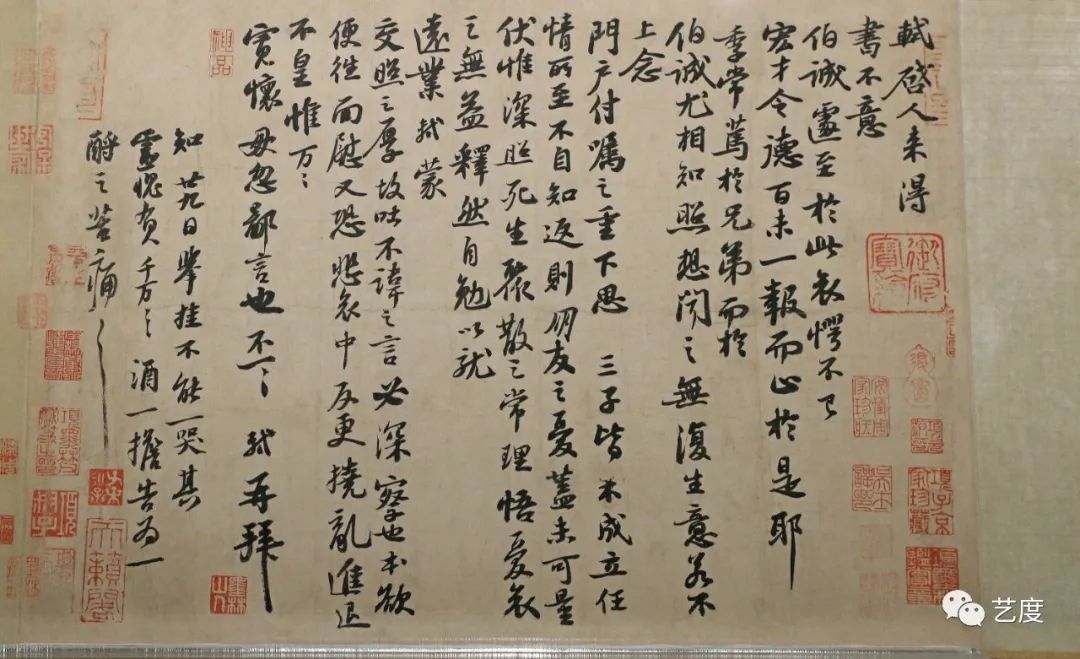 軾啓人来得
書不意
伯誠遽至於此哀愕不已
宏才令德百未一報而止於是耶
季常篤於兄弟而於
伯誠尤相知照想聞之無復生意若不
上念
門户付囑之重下思三子皆未成立任
情所至不自知返則朋友之憂蓋未可量
伏惟深照死生聚散之常理悟憂哀
之無益釋然自勉以就
遠業軾蒙
交照之厚故吐不諱之言必深察也本欲
便往面慰又恐悲哀中反更撓亂進退
不皇惟万々
寬懷毋忽鄙言也不一々軾再拜
知廿九日舉挂不能一哭其
靈愧負千万々酒一擔告為一
酹之苦痛々
御府寶繪
項子京家珍藏
艺度